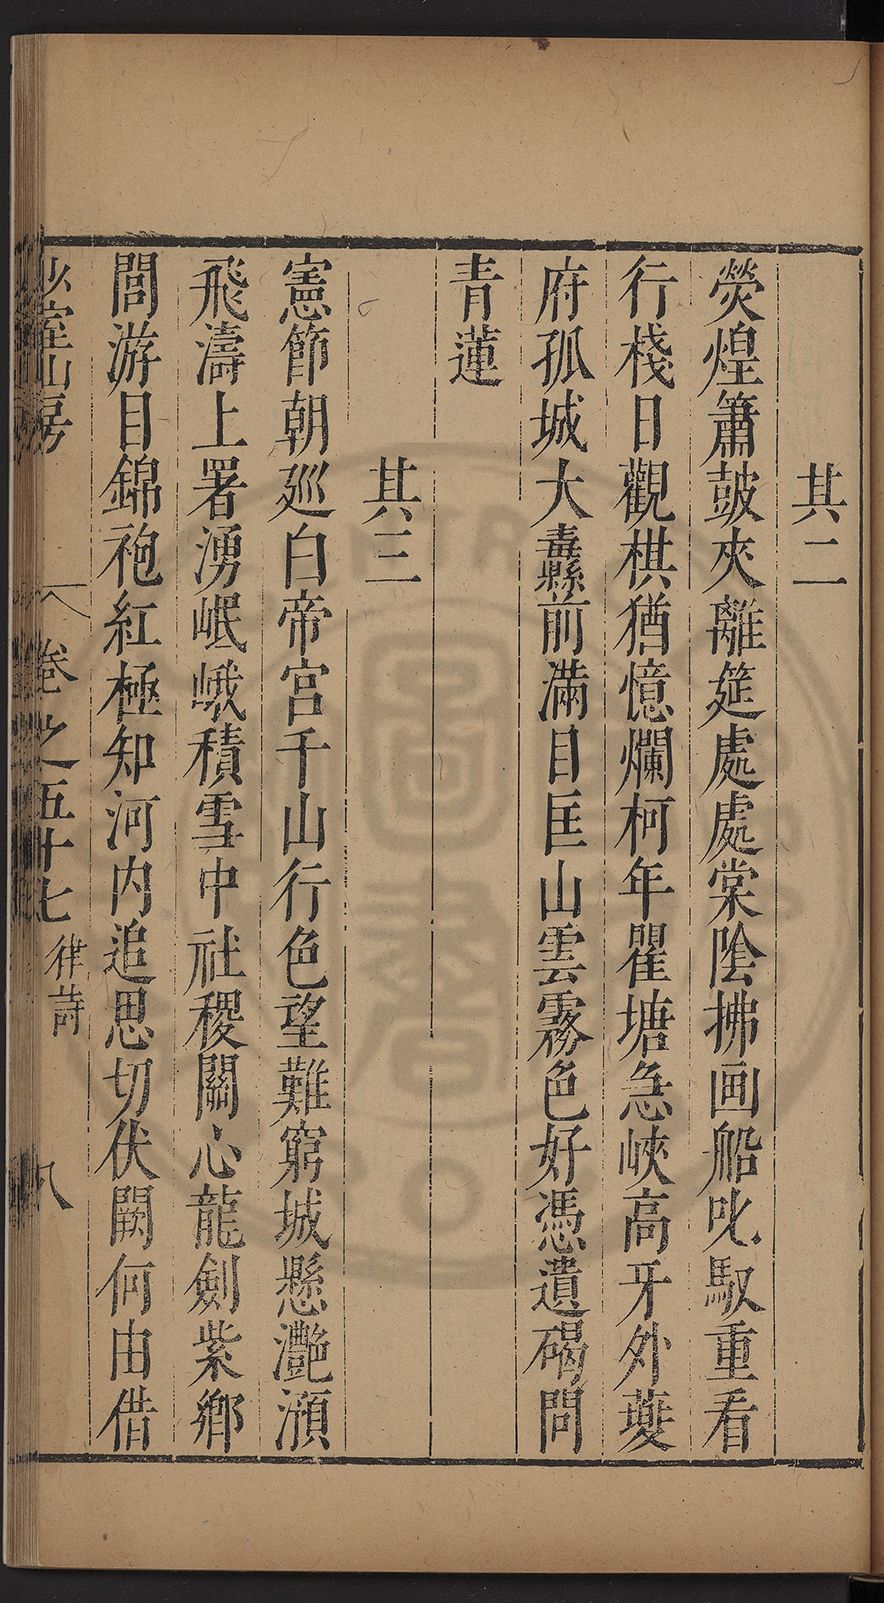 其二
熒煌簫鼓夾離筵處處棠陰拂画船叱馭重看
行棧日觀棋猶憶爛柯年瞿塘急峽高牙外夔
府孤城大纛縣前滿目匡山雲霧色好憑遺碣問
青蓮
其三
憲節朝巡白帝宮千山行色望難窮城懸灧澦
飛濤上署湧岷峨積雪中社稷關心龍劍紫鄉
閭游目錦袍紅極知河內追思切伏闕何由借
少室山房 卷之五十七 律詩 八